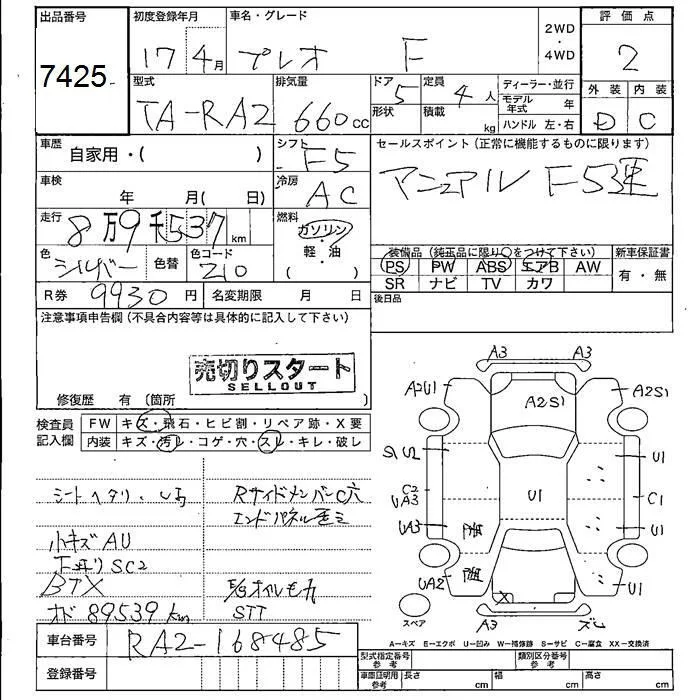 出品番号
7425
初度登録年月
17 4月
車名・グレード
プレオ F
2WD
・
4WD
評価点
2
型式
TA-RA2
排気量
660cc
ドア
5
形状
定員
4人
積載
kg
ディーラー・並行
モデル年式 年
ハンドル 左・右
外装
D
内装
C
車歴
自家用・( )
シフト
F5
セールスポイント(正常に機能するものに限ります)
マニュアル F5速
車検
年 月( 日)
冷房
AC
走行
8万9千537km
燃料
ガソリン・
軽・油
( )
色
シルバー
色替
色コード
210
装備品(純正品に限り○をつけて下さい)
PS PW ABS エアB AW
SR ナビ TV カワ
新車保証書
有・無
R券 9930円
名変期限 月 日
後日品
注意事項申告欄(不具合内容等は具体的に記入して下さい)
売切りスタート
SELLOUT
修復歴 有 (箇所 )
検査員
記入欄
FW キズ・飛石・ヒビ割・リペア跡・X要
内装 キズ・汚レ・コゲ・穴・スレ・キレ・破レ
シートヘタリ
小キズAU
下廻りSC2
BTX
オド 89539km
RサイドメンバーC穴
エンドパネル歪ミ
E/gオイルモレ
STT
A3 A3
A2U1 A2S1 A2S1
U2 U1
C2
UA3 U1 C1
UA3 U1
UA2 X U1
スペア
A3 ズレ
A−キズ E−エクボ U−凹み W−補修跡 S−サビ C−腐食 XX−交換済
車台番号
RA2-168485
登録番号
型式指定番号
参考
類別区分番号
参考
車庫証明用
参考
長さ cm
幅 cm
高さ cm